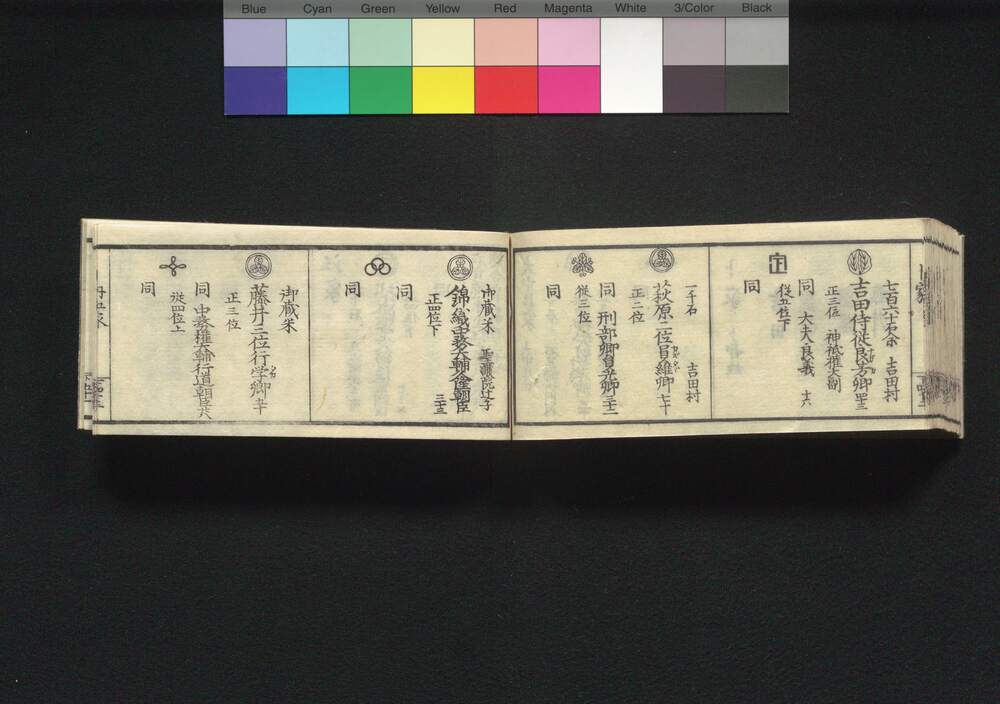 Blue Cyan Green Yellow Red Magenta White 3/Color Black
七百六十石余 吉田村
吉田侍従良芳卿 四十三
正三位 神祇権大副
同 大夫良義 十六
従五位下
同
一千石 吉田村
萩原二位員維卿 七十
正二位
同 刑部卿員光卿 三十二
従三位
同
御蔵米 聖護院辻子
錦織中務大輔久隆朝臣 三十三
正四位下
同
同
御蔵米
藤井三位行学卿 五十
正三位
同 中務権大輔行道朝臣 廿八
従四位上
同